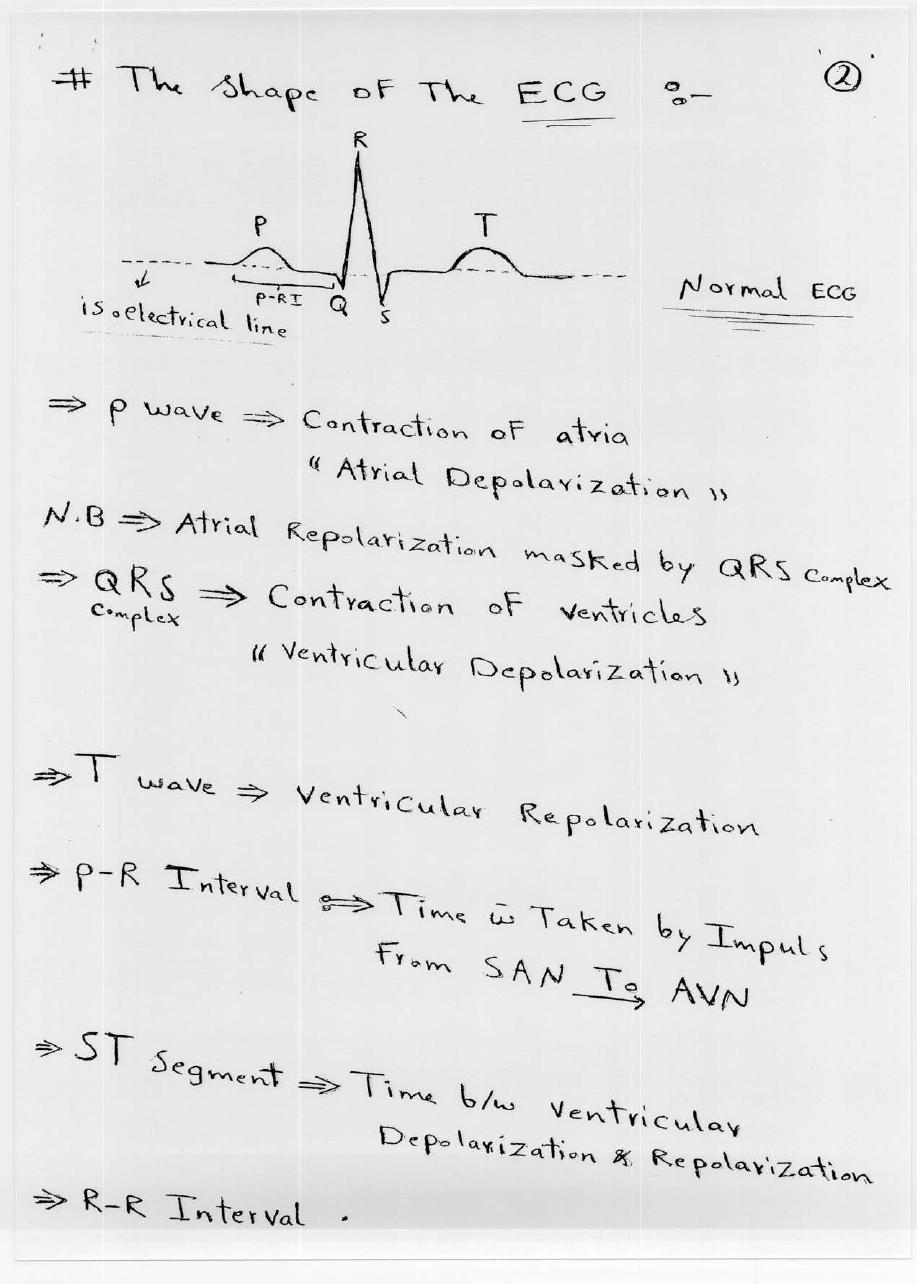 # The Shape of The ECG :-
②
R
P
T
P-RI
Q
S
isoelectrical line
Normal ECG
⇒ P wave ⇒ Contraction of atria
" Atrial Depolarization "
N.B ⇒ Atrial Repolarization masked by QRS Complex
⇒ QRS Complex ⇒ Contraction of ventricles
" Ventricular Depolarization "
⇒ T wave ⇒ Ventricular Repolarization
⇒ P-R Interval ⇒ Time w̄ Taken by Impuls
From SAN To → AVN
⇒ ST Segment ⇒ Time b/w ventricular
Depolarization & Repolarization
⇒ R-R Interval .